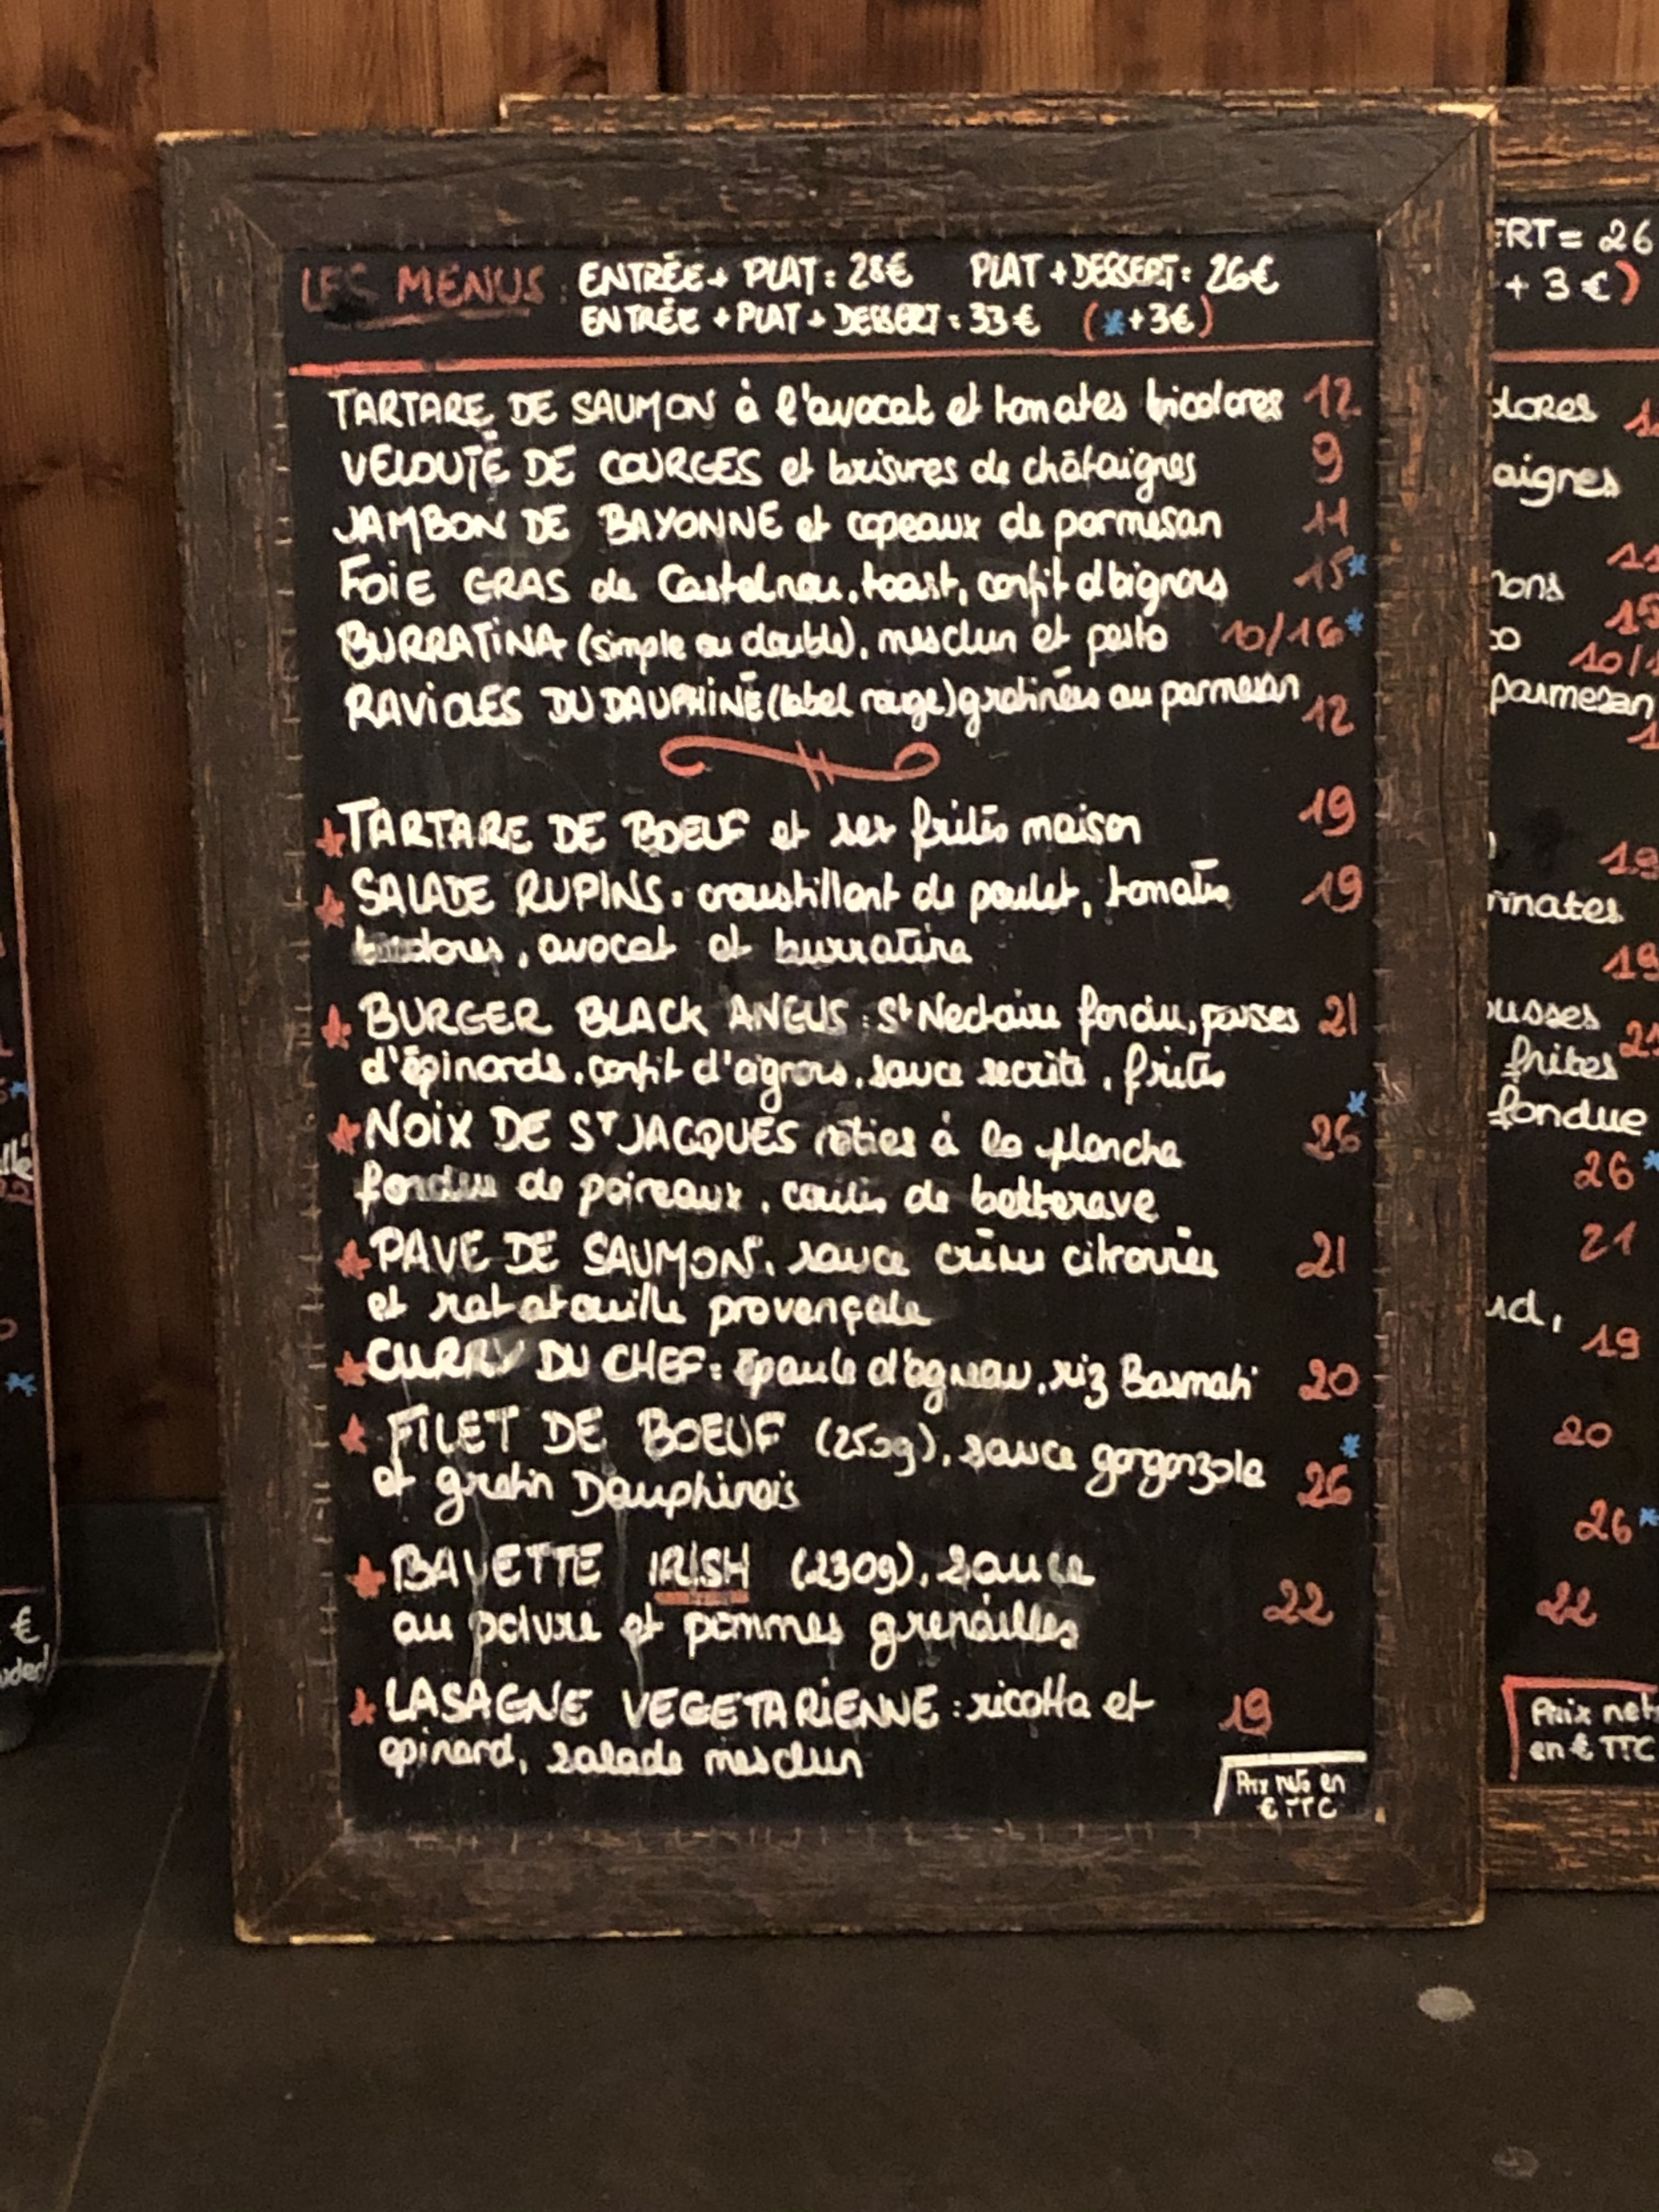 LES MENUS : ENTRÉE + PLAT = 28€ PLAT + DESSERT = 26€
ENTRÉE + PLAT + DESSERT = 33€ (*+3€)
TARTARE DE SAUMON à l'avocat et tomates tricolores 12
VELOUTÉ DE COURGES et brisures de châtaignes 9
JAMBON DE BAYONNE et copeaux de parmesan 11
FOIE GRAS de Castelnau, toast, confit d'oignons 15*
BURRATINA (simple ou double), mesclun et pesto 10/16*
RAVIOLES DU DAUPHINÉ (label rouge) gratinées au parmesan 12
TARTARE DE BOEUF et ses frites maison 19
SALADE RUPINS : croustillant de poulet, tomates 19
avocat et burratina
BURGER BLACK ANGUS : St Nectaire fondu, pousses 21
d'épinards, confit d'oignons, sauce secrète, frites
NOIX DE ST JACQUES rôties à la plancha 26*
fondue de poireaux, coulis de betterave
PAVE DE SAUMON, sauce crème citronnée 21
et ratatouille provençale
CURRY DU CHEF : épaule d'agneau, riz Basmati 20
FILET DE BOEUF (250g), sauce gorgonzola 26*
et gratin Dauphinois
BAVETTE IRISH (230g), sauce
au poivre et pommes grenailles 22
LASAGNE VEGETARIENNE : ricotta et 19
epinard, salade mesclun
Prix nets en
€ TTC
ERT = 26
+ 3 €)
dores
aignes
11
nons 15
10/1
parmesan
19
mates
19
ousses 21
frites
fondue
26*
21
ud,
19
20
26*
22
Prix nets
en € TTC
€